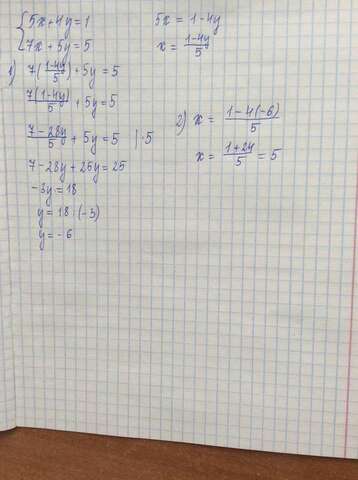 {5x+4y=1
{7x+5y=5
5x = 1-4y
x = (1-4y)/5
1) 7((1-4y)/5) + 5y = 5
7(1-4y)/5 + 5y = 5
(7-28y)/5 + 5y = 5 |·5
7-28y + 25y = 25
-3y = 18
y = 18:(-3)
y = -6
2) x = (1-4(-6))/5
x = (1+24)/5 = 5